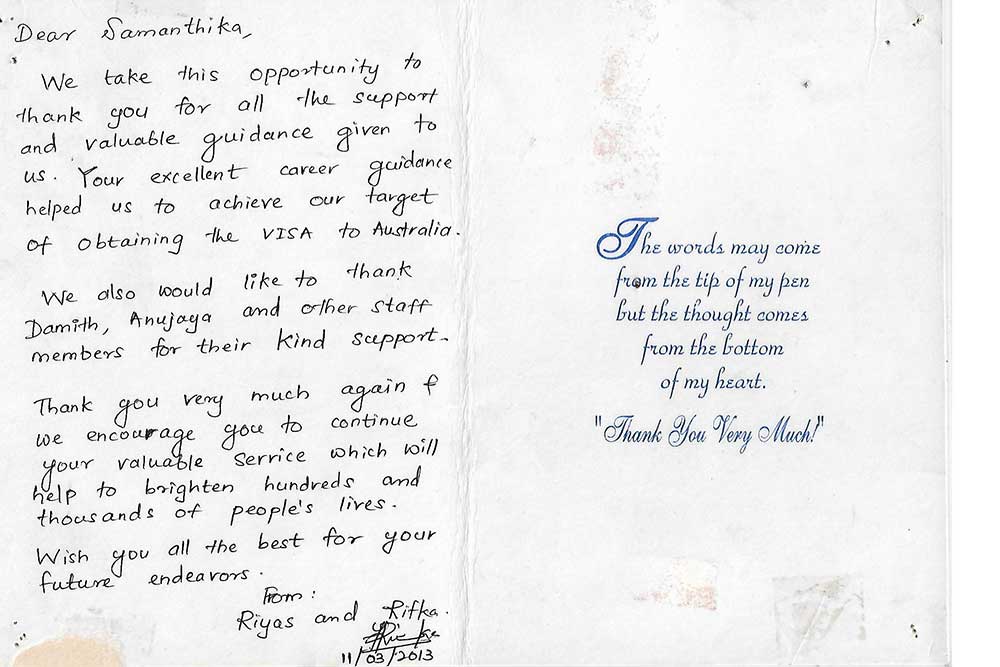 Dear Samanthika,
We take this opportunity to
thank you for all the support
and valuable guidance given to
us. Your excellent career guidance
helped us to achieve our target
of obtaining the VISA to Australia.
We also would like to thank
Damith, Anujaya and other staff
members for their kind support.
Thank you very much again &
we encourage you to continue
your valuable service which will
help to brighten hundreds and
thousands of people's lives.
Wish you all the best for your
future endeavors.
From:
Riyas and Rifka.
11/03/2013
The words may come
from the tip of my pen
but the thought comes
from the bottom
of my heart.
"Thank You Very Much!"